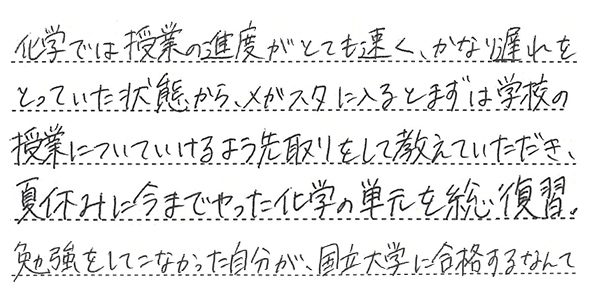 化学では授業の進度がとても速く、かなり遅れを
とっていた状態から、メガスタに入るとまずは学校の
授業についていけるよう先取りをして教えていただき、
夏休みに今までやった化学の単元を総復習。
勉強をしてこなかった自分が、国立大学に合格するなんて